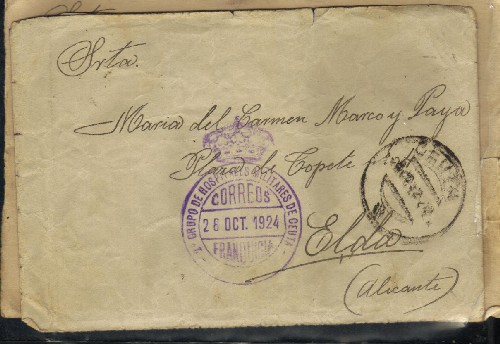 Srta.
Maria del Carmen Marco y Paya
Plaza de Topete
Elda
(Alicante)
2º GRUPO DE HOSPITALES MILITARES DE CEUTA
CORREOS
28 OCT. 1924
FRANQUICIA
CEUTA